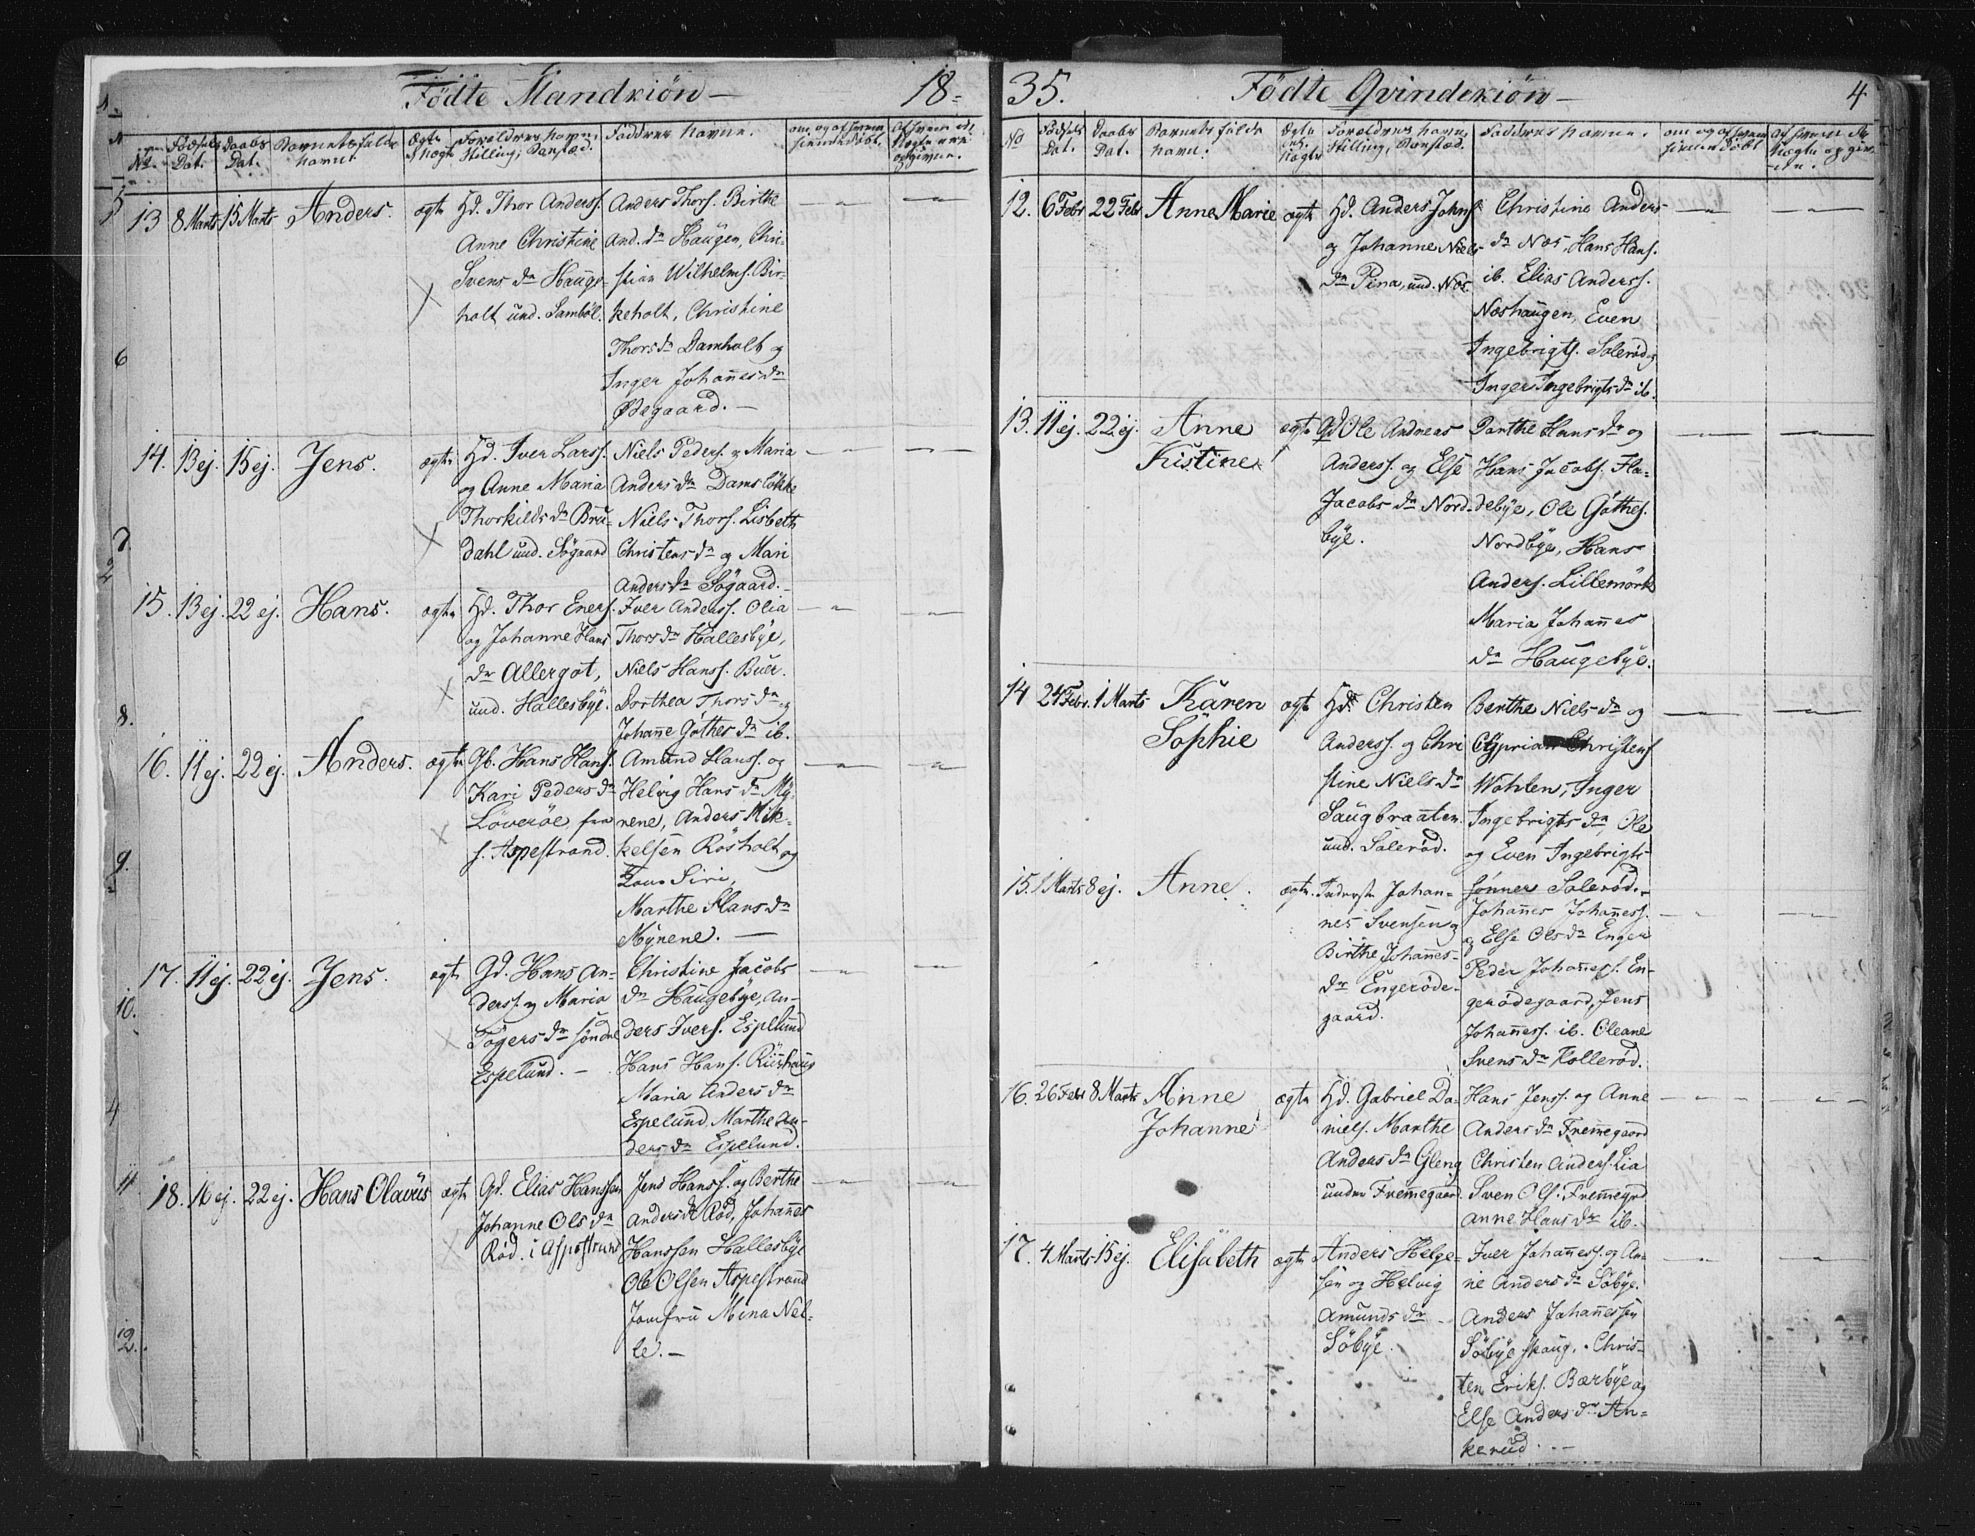 Födte Mandkiön — 18-
No. Födsels Dat. Daabs Dat. Barnets fulde navn. Ægte Uægte Foreldres navn, Stilling, Bopæl. Faddres navne.
13 8 Marts 15 Marts Anders. ægte Hd. Thor Anders.
Anne Christine
Svens dr. Hauge-
holt und. Sambøl.
Anders Thors. Birthe
And. dr. Haugen, Chri-
stian Wilhelms. Bir-
keholt, Christine
Thors dr Damholt og
Inger Johannes dr
Ødegaard. —
14. 13 ej. 15 ej. Jens. ægte Hd. Iver Lars.
og Anne Maria
Thorkilds dr Bru-
dahl und. Søgaard
Niels Peders. og Maria
Anders dr Damsløkke
Niels Thors. Lisbeth
Christens dr og Mari
Anders dr Søgaard.
15. 13 ej. 22 ej. Hans. ægte Hd. Thor Eners.
og Johanne Hans
dr Allergot,
und. Hallesbye.
Iver Anders. Olia
Thors dr Hallesbye,
Niels Hans. Buer.
Dorthea Thors dr og
Johanne Gøthes dr ib.
16. 11 ej. 22 ej. Anders. ægte Gb. Hans Hans.
Kari Peders dr
Løverøe, fra
s. Aspestrand.
Amund Hans. og
Helvig Hans dr My-
nene, Anders Mik-
kelsen Røsholt og
Siri,
Marthe Hans dr
Mynene. —
17. 11 ej. 22 ej. Jens. ægte Gd. Hans An-
ders. og Maria
Tøgers dr søndre
Espelund. —
Christine Jacobs
dr Haugebye, An-
ders Ivers. Espelund
Hans Hans. Riishaug
Maria Anders dr
Espelund, Marthe An-
ders dr Espelund.
18. 16 ej. 22 ej. Hans Olavus ægte Gd. Elias Hanssen
Johanne Ols dr
Rød. i Aspestrand
Jens Hans. og Berthe
Anders dr Rød, Johannes
Hanssen Hallesbye
Ole Olsen Aspestrand
Jomfru Mina Nel-
le. —
35. Födte Qvindekiön — 4
No Födsels Dat. Daabs Dat. Barnets fulde navn. Ægte Uægte Foreldres navn, Stilling, Bopæl. Faddres navne.
12. 6 Febr 22 Febr Anne Marie ægte Hd. Anders Johns.
og Johanne Niels
dr Pina, und. Næs.
Christine Anders
dr Næs, Hans Hans.
ib. Elias Anders.
Næshaugen, Even
Ingebrigts. Salerød og
Inger Ingebrigts dr ib.
13. 11 ej. 22 ej. Anne
Kistine
ægte Gd Ole Andreas
Anders. og Else
Jacobs dr Nord-
bye.
Dorthe Hans dr og
Hans Jacobs. Fla-
debye, Ole Gøthes.
Nordbye, Hans
Anders. Lillemørk
Maria Johannes
dr Haugebye.
14 24 Febr. 1 Marts Karen
Sophie
ægte Hd. Christen
Anders. og Chri
stine Niels dr
Saugbraaten.
und. Salerød.
Berthe Niels dr og
Cyprian Christens.
Wohlen, Inger
Ingebrigts dr, Ole
og Even Ingebrigts-
sønner Salerød.
15. 1 Marts 8 ej. Anne. ægte Johan-
nes Svensen og
Birthe Johannes-
dr Engerøde-
gaard.
Johannes Johannes.
og Else Ols dr Enger
Peder Johannes. En-
gerødegaard, Jens
Johannes. ib. Oleane
Svens dr Kollerød.
16. 26 Febr 8 Marts Anne
Johanne
ægte Hd. Gabriel Da-
niels. Marthe
Anders dr Gleng
under Fremegaard
Hans Jens. og Anne
Anders dr Fremegaard
Christen Anders. Lia
Sven Ols. Fremegrd
Anne Hans dr ib.
17. 4 Marts 15 ej. Elisabeth ægte Anders Helge-
sen og Helvig
Amunds dr
Søbye.
Iver Johannes. og An-
ne Anders dr Søbye.
Anders Johannessen
Søbye skaug, Chris-
ten Eriks. Bærbye og
Else Anders dr An-
kerud. —